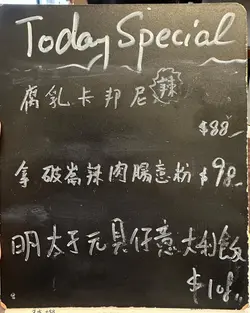 Today Special
腐乳卡邦尼 辣
$88
拿破崙辣肉腸意粉 $98
明太子元貝仔意大利飯
$108